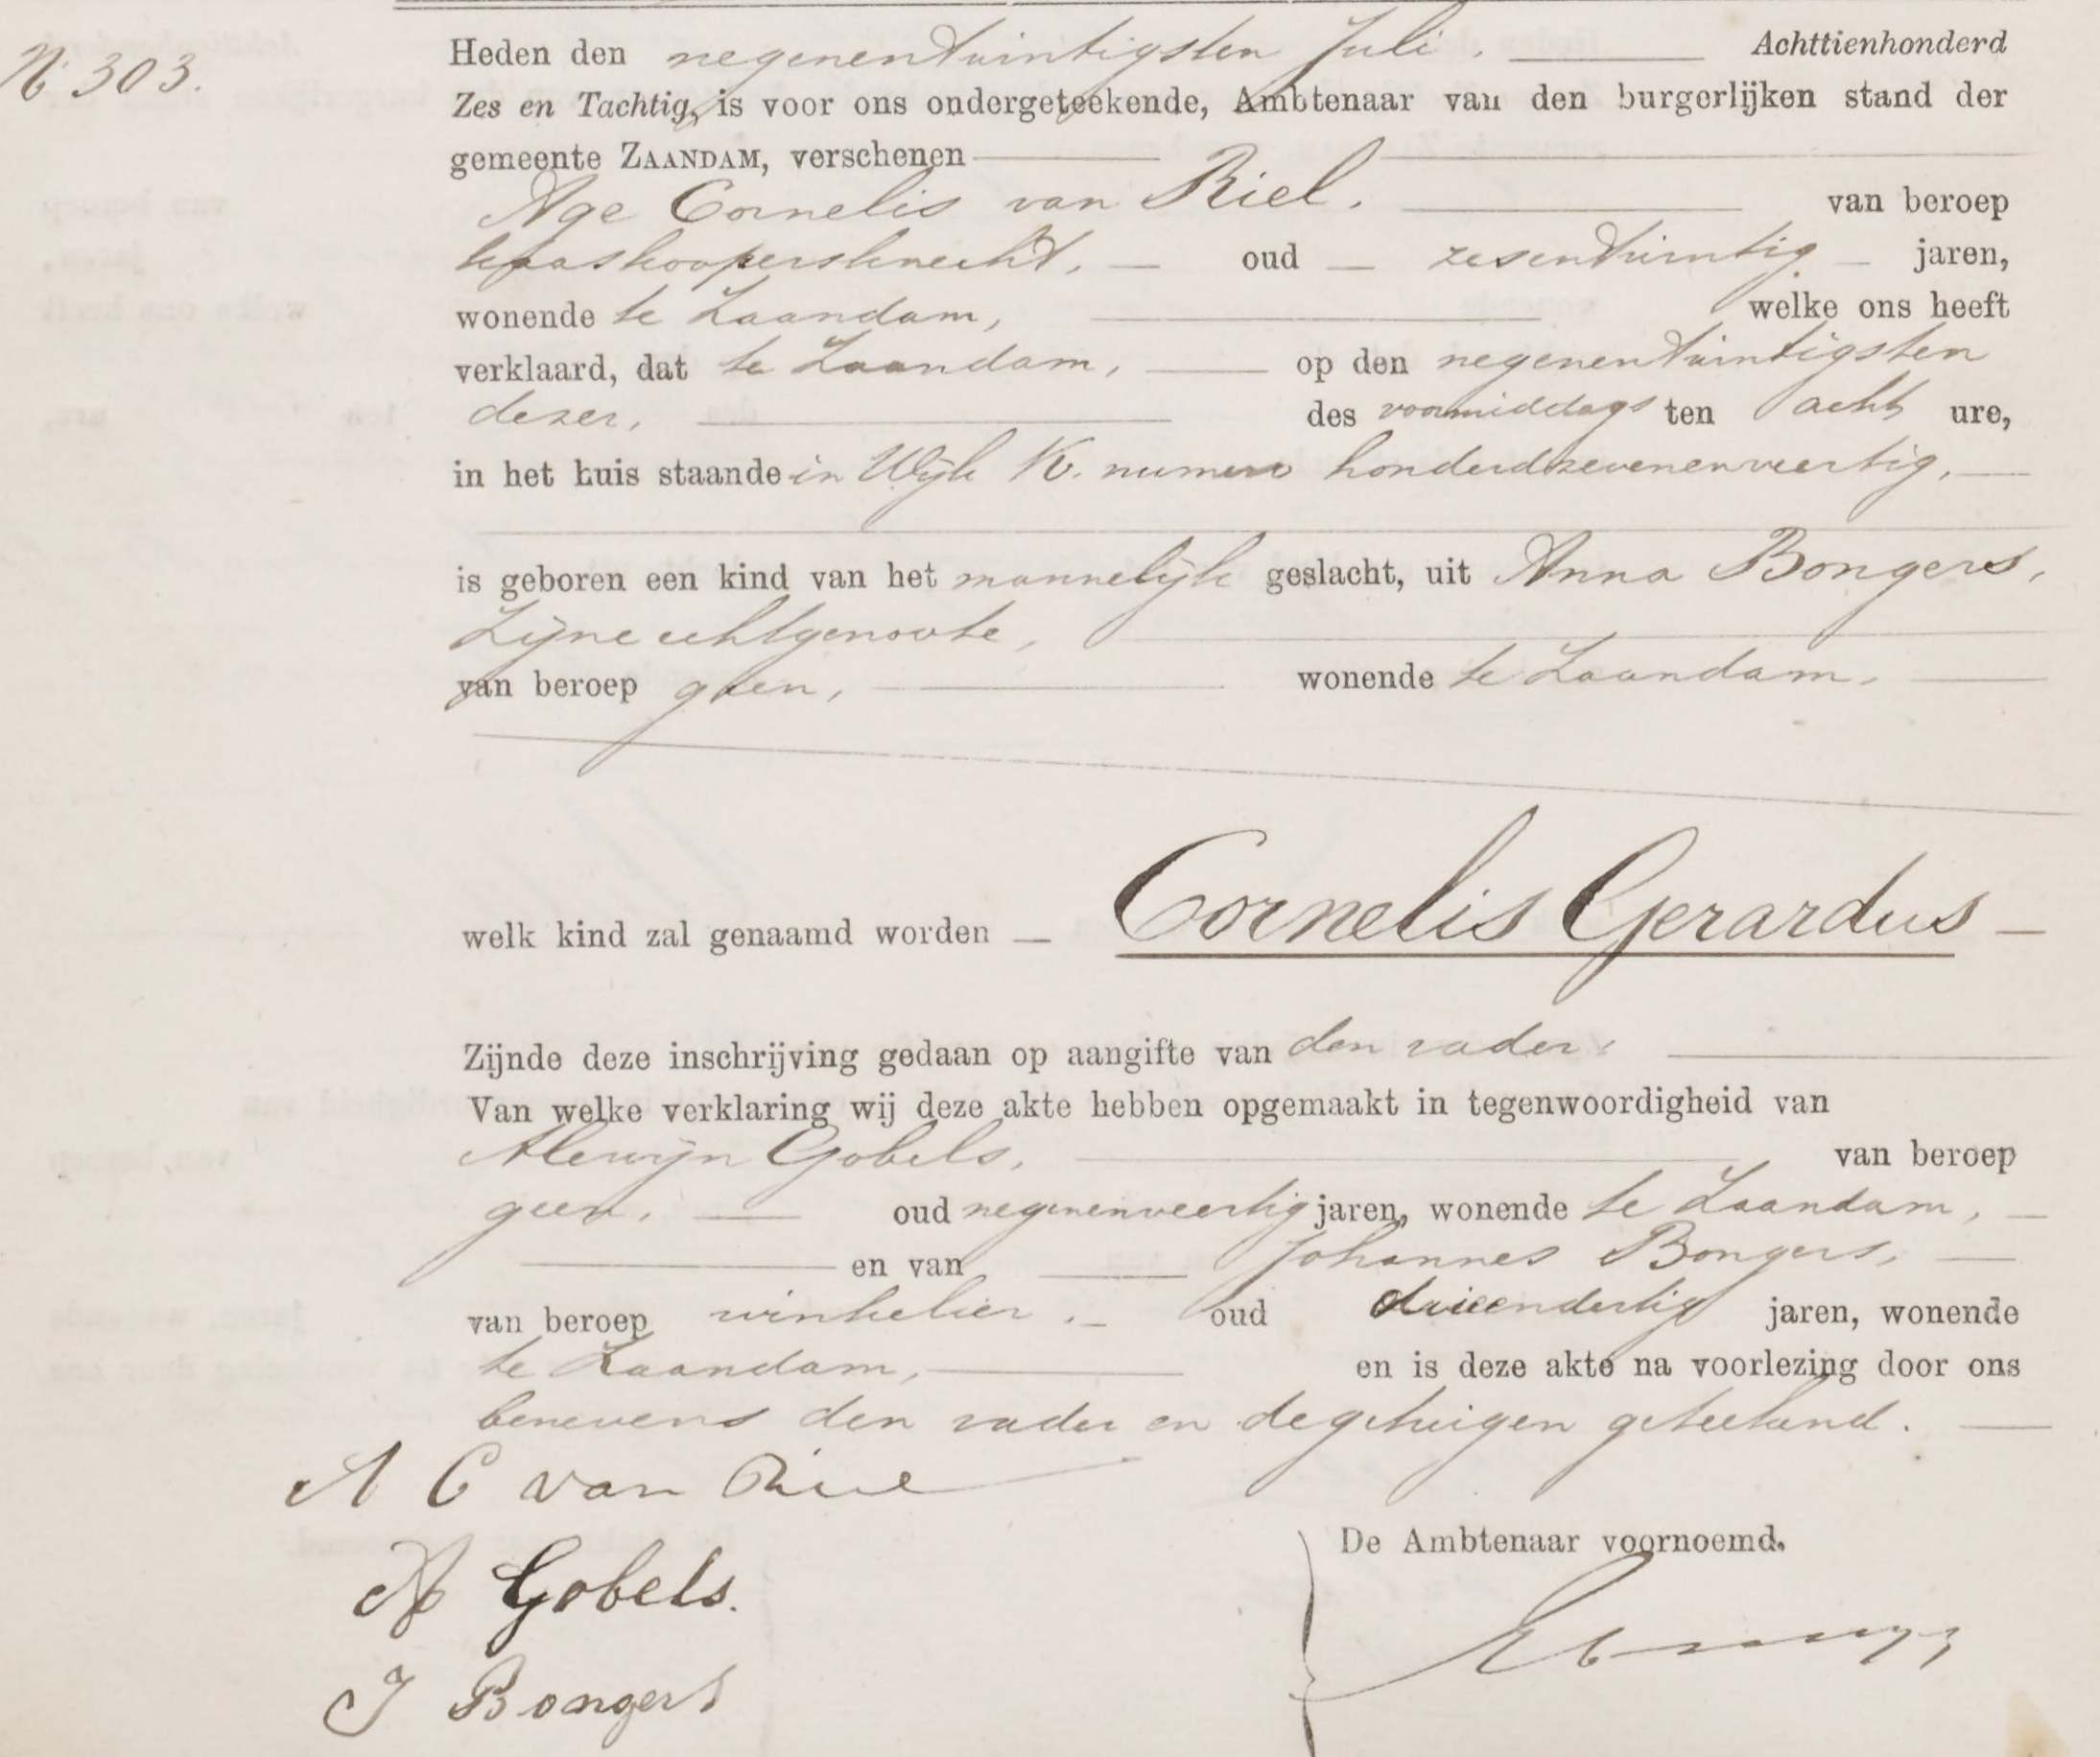 N. 303.
Heden den negenentwintigsten Juli. Achttienhonderd
Zes en Tachtig, is voor ons ondergeteekende, Ambtenaar van den burgerlijken stand der
gemeente ZAANDAM, verschenen
Age Cornelis van Riel. van beroep
kaaskoopersknecht, oud zesentwintig jaren,
wonende te Zaandam, welke ons heeft
verklaard, dat te Zaandam, op den negenentwintigsten
dezer, des voormiddags ten acht ure,
in het huis staande in Wijk K. numero honderdzevenenveertig,
is geboren een kind van het mannelijk geslacht, uit Anna Bongers,
Zijne echtgenoote,
van beroep geen, wonende te Zaandam.
welk kind zal genaamd worden Cornelis Gerardus
Zijnde deze inschrijving gedaan op aangifte van den vader.
Van welke verklaring wij deze akte hebben opgemaakt in tegenwoordigheid van
Alewijn Gobels, van beroep
geen, oud negenenveertig jaren, wonende te Zaandam,
en van Johannes Bongers,
van beroep winkelier. oud drieendertig jaren, wonende
te Zaandam, en is deze akte na voorlezing door ons
benevens den vader en de getuigen geteekend.
A C van Riel
A Gobels.
De Ambtenaar voornoemd.
J Bongers